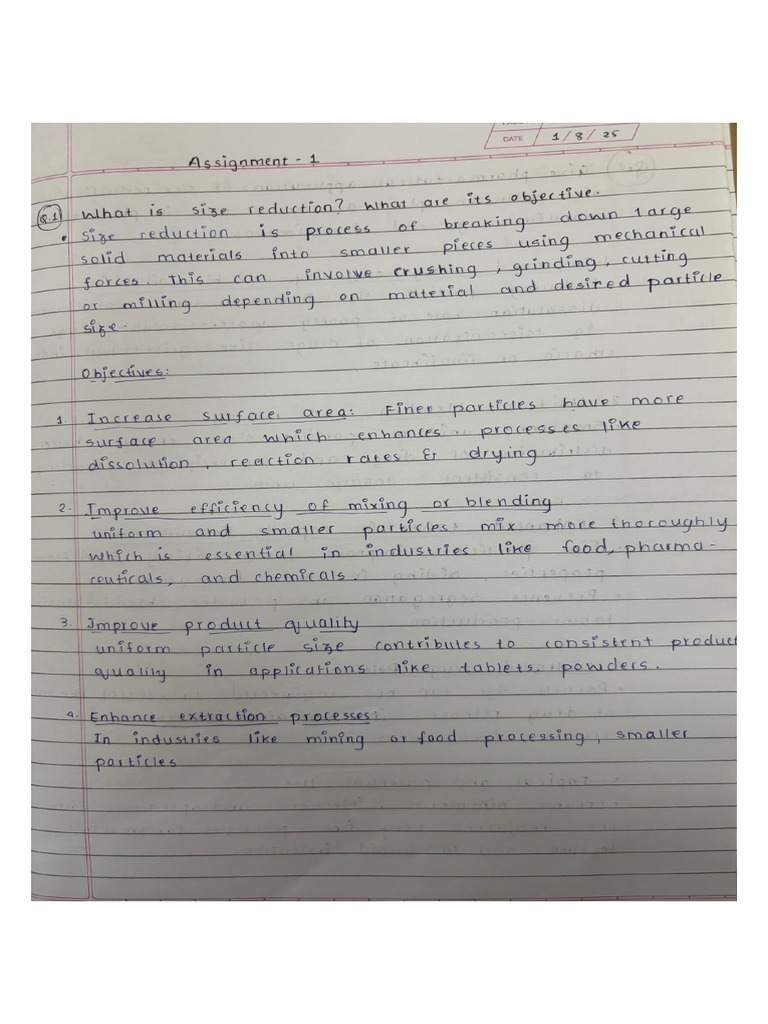 DATE 1/8/25
Assignment - 1
Q.1 What is size reduction? What are its objective.
• Size reduction is process of breaking down large
solid materials into smaller pieces using mechanical
forces. This can involve crushing, grinding, cutting
or milling depending on material and desired particle
size.
Objectives:
1. Increase surface area: Finer particles have more
surface area which enhances processes like
dissolution, reaction rates & drying.
2. Improve efficiency of mixing or blending
uniform and smaller particles mix more thoroughly
which is essential in industries like food, pharma-
ceuticals, and chemicals.
3. Improve product quality
uniform particle size contributes to consistent product
quality in applications like tablets, powders.
4. Enhance extraction processes:
In industries like mining or food processing, smaller
particles